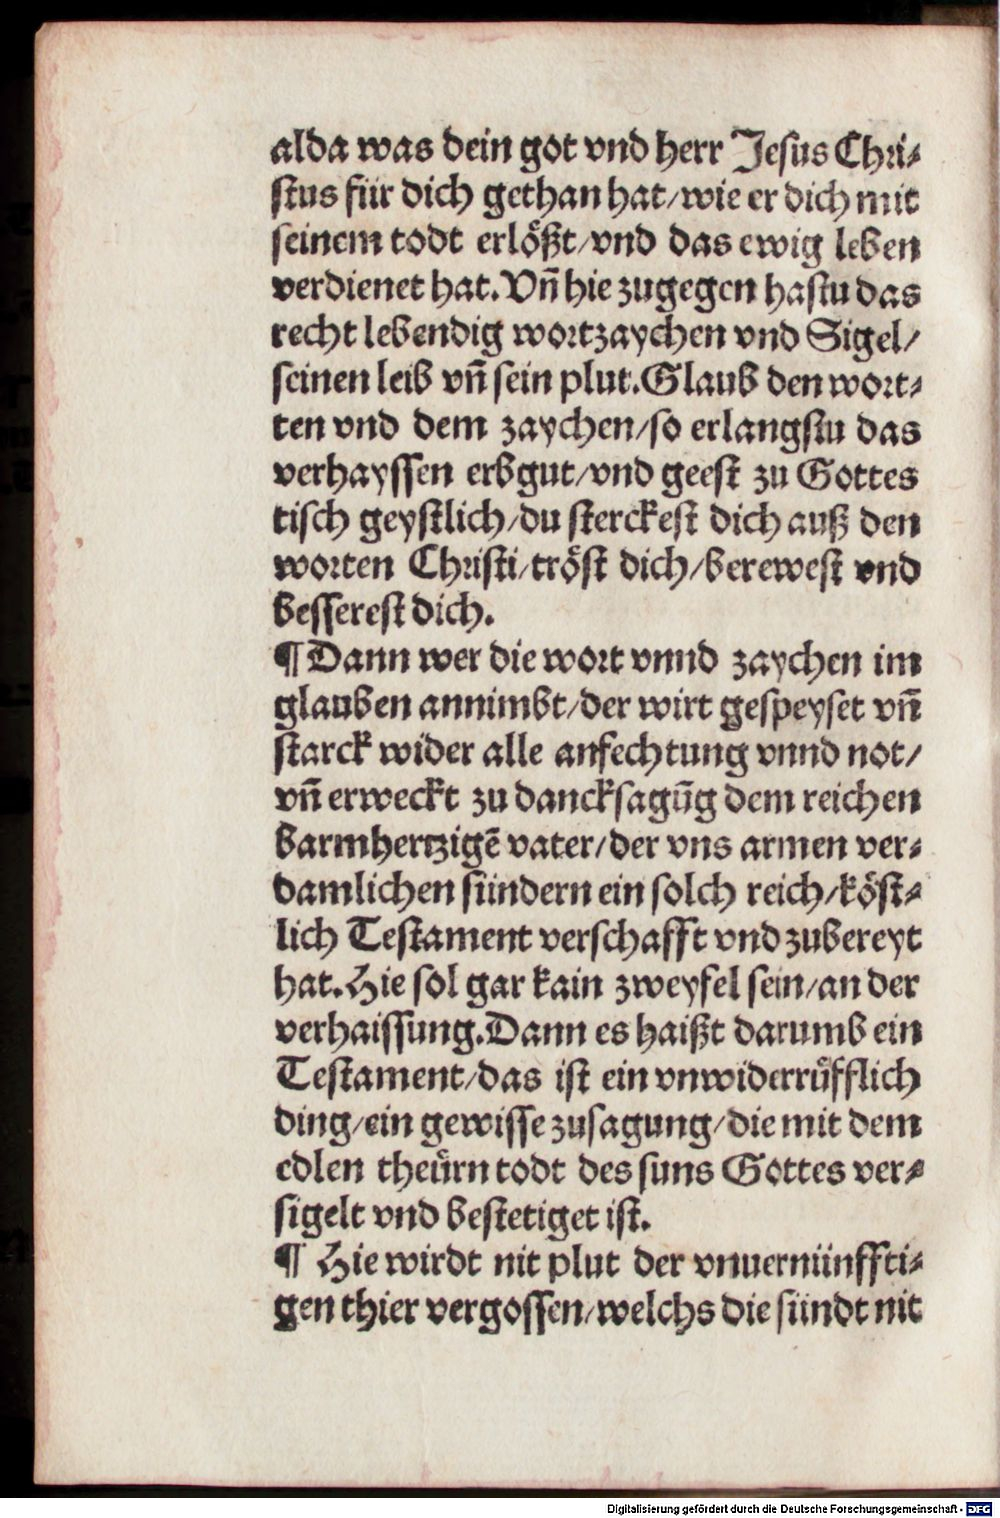 alda was dein got vnd herr Jesus Chri⸗
stus für dich gethan hat/wie er dich mit
seinem todt erlößt/vnd das ewig leben
verdienet hat. Vñ hie zugegen hastu das
recht lebendig wortzaychen vnd Sigel/
seinen leib vñ sein plut. Glaub den wort⸗
ten vnd dem zaychen/so erlangstu das
verhayssen erbgut/vnd geest zu Gottes
tisch geystlich/du sterckest dich auß den
worten Christi/tröst dich/berewest vnd
besserest dich.
¶ Dann wer die wort vnnd zaychen im
glauben annimbt/der wirt gespeyset vñ
starck wider alle anfechtung vnnd not/
vñ erweckt zu dancksagūg dem reichen
barmhertzigē vater/der vns armen ver⸗
damlichen sündern ein solch reich/köst⸗
lich Testament verschafft vnd zubereyt
hat. Hie sol gar kain zweyfel sein/an der
verhaissung. Dann es haißt darumb ein
Testament/das ist ein vnwiderrüfflich
ding/ein gewisse zusagung/die mit dem
edlen theürn todt des suns Gottes ver⸗
sigelt vnd bestetiget ist.
¶ Hie wirdt nit plut der vnuernünffti⸗
gen thier vergossen/welchs die sündt nit
Digitalisierung gefördert durch die Deutsche Forschungsgemeinschaft - DFG